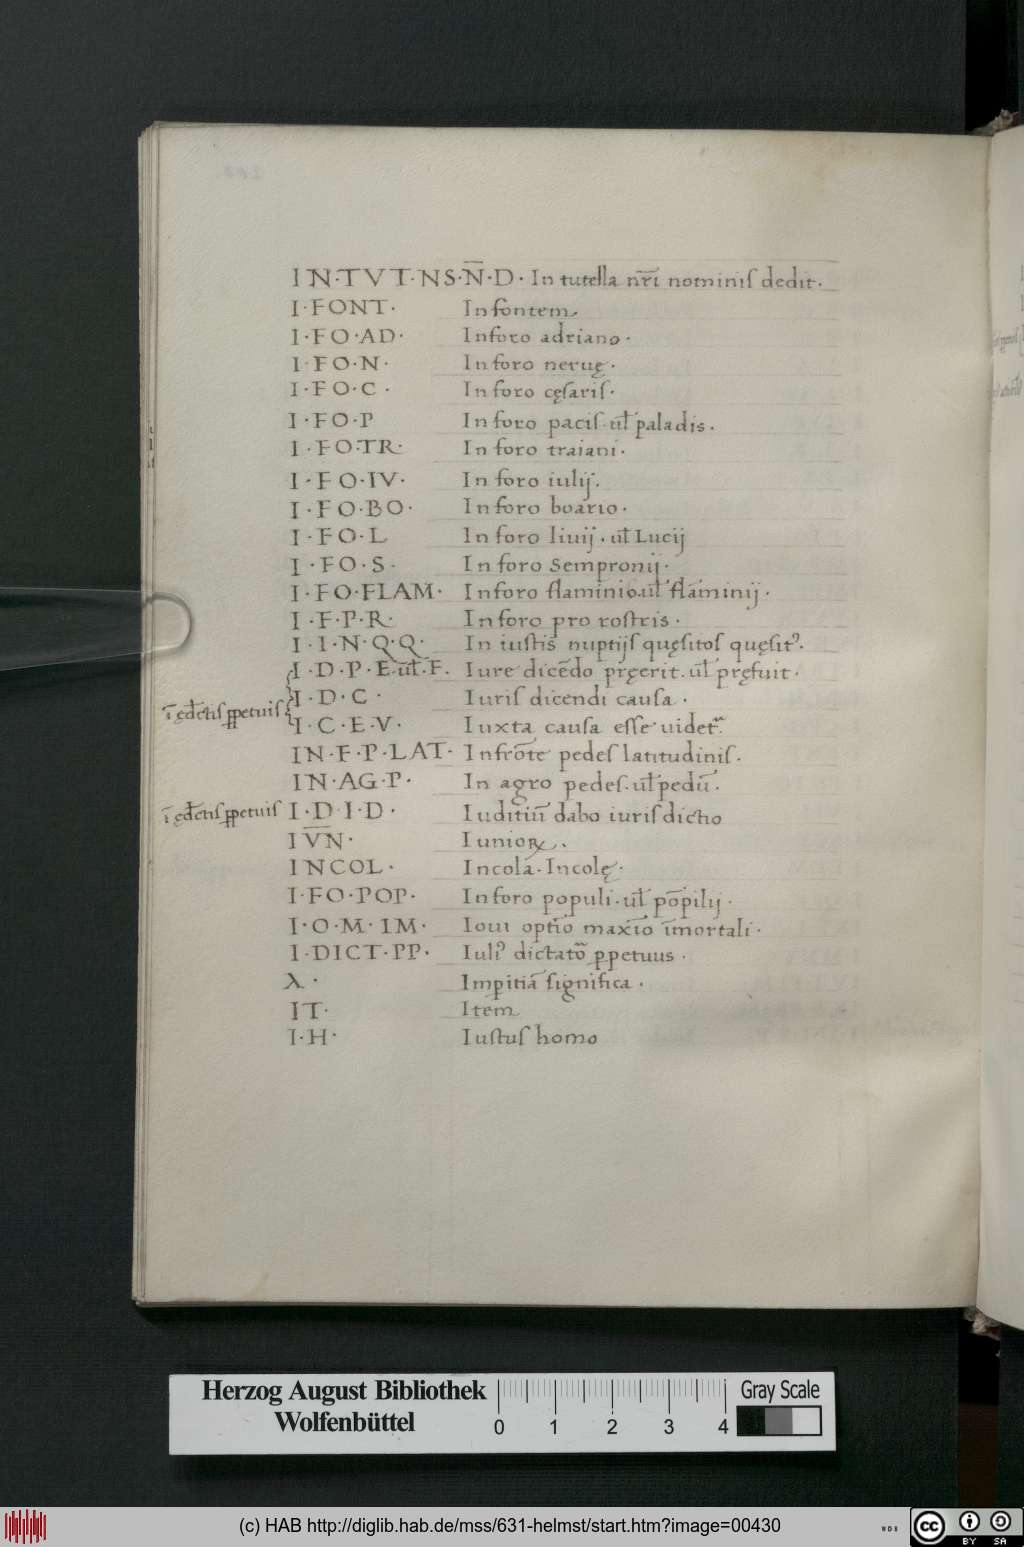 IN·TVT·NS·N̅·D· In tutella nr̅i nominis dedit·
I·FONT· In fontem
I·FO·AD· In foro adriano·
I·FO·N· In foro neruę·
I·FO·C· In foro cęsaris·
I·FO·P In foro pacis·ul̅ paladis·
I·FO·TR· In foro traiani·
I·FO·IV· In foro iulij·
I·FO·BO· In foro boario·
I·FO·L In foro liuij·ul̅ Lucij
I·FO·S· In foro Sempronij·
I·FO·FLAM· In foro flaminio·ul̅ flaminij·
I·F·P·R· In foro pro rostris·
I·I·N·Q·Q· In iustis nuptijs quęsitos quęsit᾽·
I·D·P·E·ul̅·F· Iure dice̅do pręerit·ul̅ pręfuit·
I·D·C· Iuris dicendi causa·
i̅ ędictis ꝑpetuis
I·C·E·V· Iuxta causa esse uidet᷑
IN·F·P·LAT· In fro̅te pedes latitudinis·
IN·AG·P· In agro pedes·ul̅ pedu̅·
i̅ ędictis ꝑpetuis I·D·I·D· Iuditiu̅ dabo iurisdictio
IV̅N̅· Iunioꝝ·
INCOL· Incola·Incolę·
I·FO·POP· In foro populi·ul̅ po̅pilij·
I·O·M·IM· Ioui optio̅ maxio̅ i̅mortali·
I·DICT·PP· Iuli᾽ dictato᷑ ꝑpetuus·
λ· Imꝑitia̅ significa·
IT· Item
I·H· Iustus homo
Herzog August Bibliothek
Wolfenbüttel
0 1 2 3 4
Gray Scale
(c) HAB http://diglib.hab.de/mss/631-helmst/start.htm?image=00430
WDB
cc BY SA